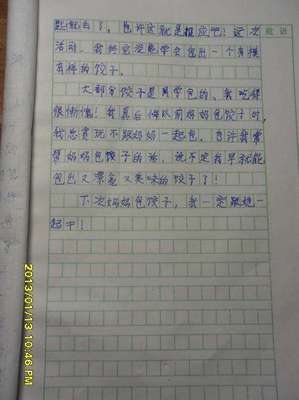 就去了，也许这就是报应吧！这次
活动，我终究没能学会包出一个有模
有样的饺子。
大部分饺子是同学包的，我吃得
很惭愧！我真后悔以前妈妈包饺子时，
我总贪玩不跟妈妈一起包，也许我常
帮妈妈包饺子的话，说不定我早就能
包出又漂亮又美味的饺子了！
下次妈妈包饺子，我一定跟她一
起包！
2013/01/13 10:46 PM